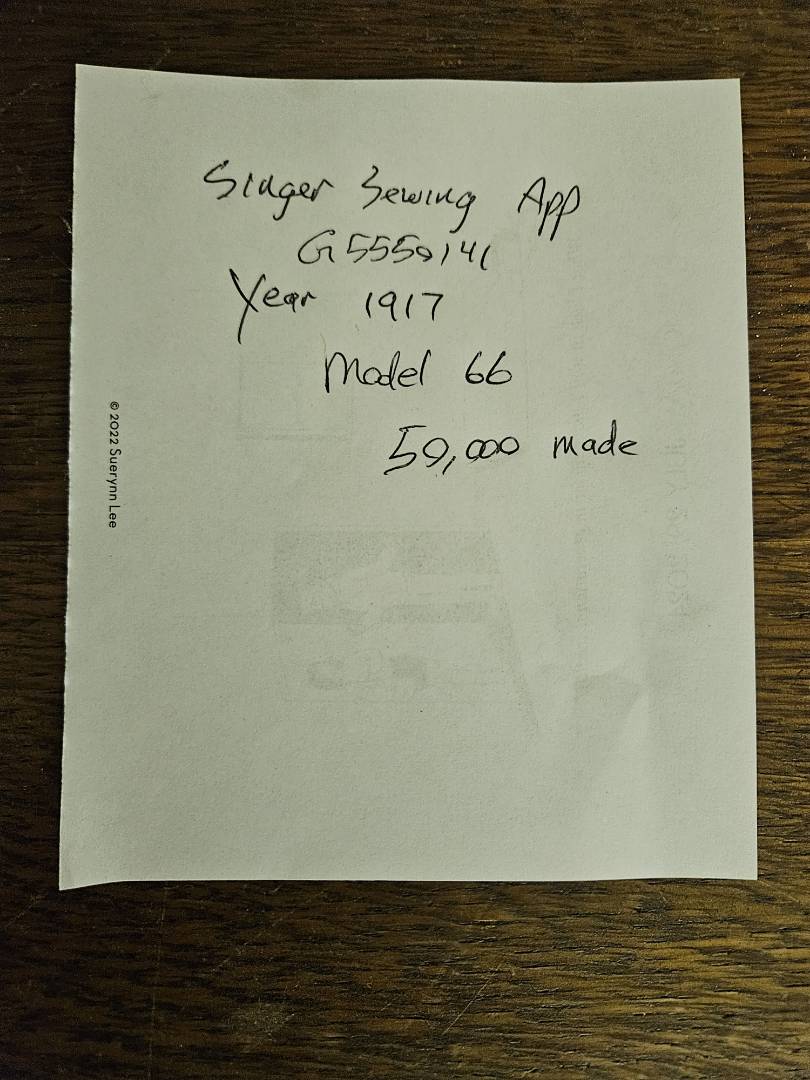 Singer Sewing App
G5550141
Year 1917
Model 66
50,000 made
© 2022 Suerynn Lee